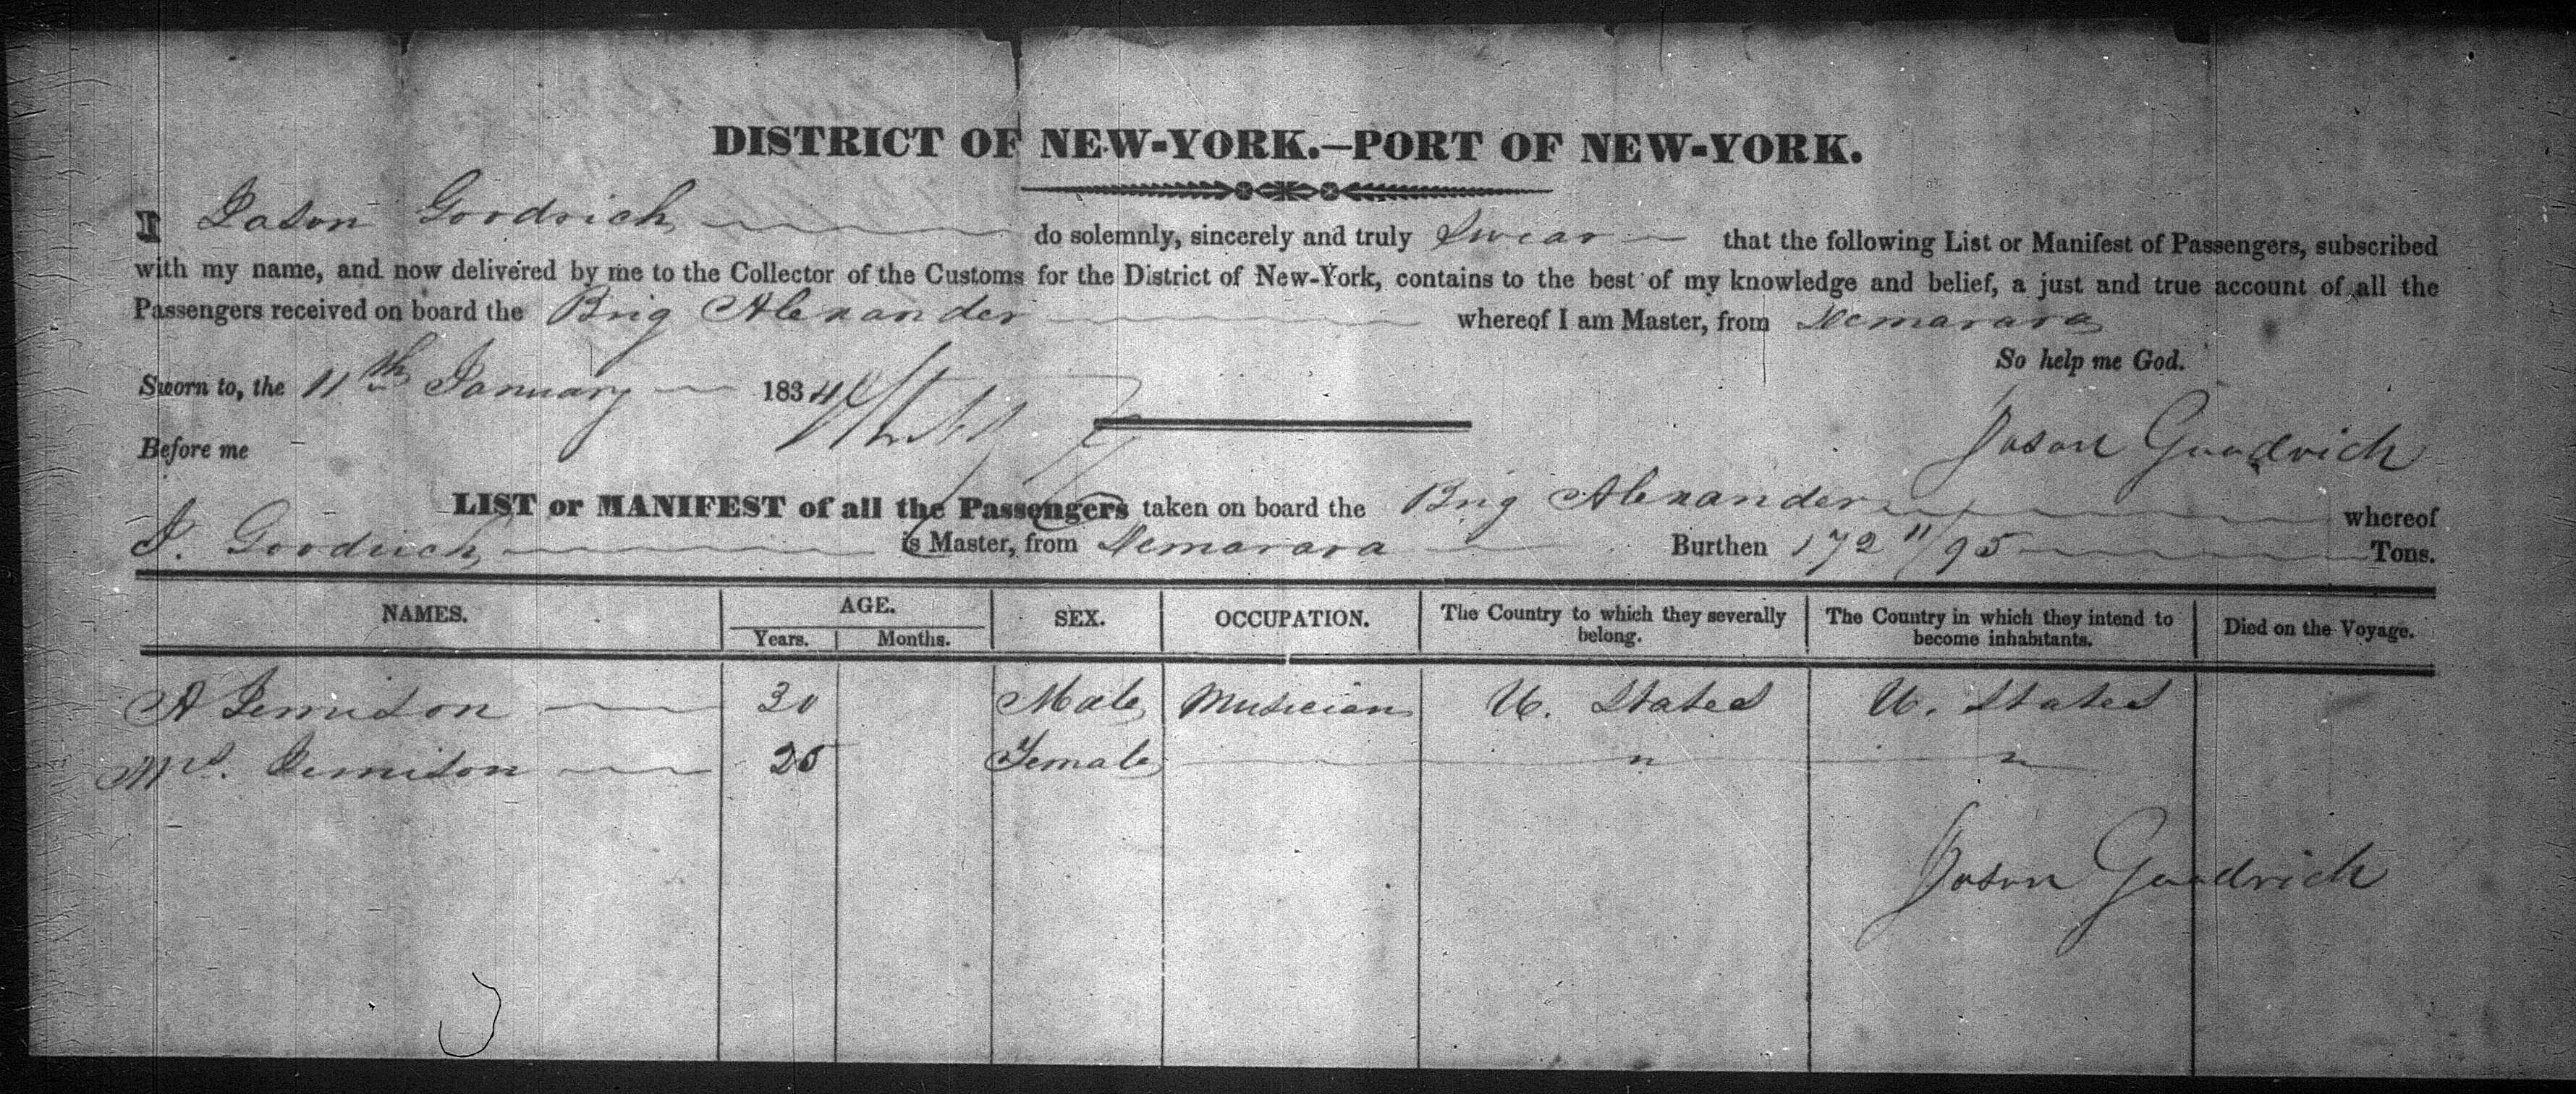 DISTRICT OF NEW-YORK.—PORT OF NEW-YORK.
I Jason Goodrich do solemnly, sincerely and truly Swear that the following List or Manifest of Passengers, subscribed
with my name, and now delivered by me to the Collector of the Customs for the District of New-York, contains to the best of my knowledge and belief, a just and true account of all the
Passengers received on board the Brig Alexander whereof I am Master, from Demarara
So help me God.
Sworn to, the 11th January 1834
Jason Goodrich
Before me
LIST or MANIFEST of all the Passengers taken on board the Brig Alexander whereof
J. Goodrich is Master, from Demarara Burthen 172 11/95 Tons.
NAMES. AGE. Years. Months. SEX. OCCUPATION. The Country to which they severally belong. The Country in which they intend to become inhabitants. Died on the Voyage.
A Jemison 30 Male Musician U. States U. States
Mrs. Jemison 25 Female " "
Jason Goodrich